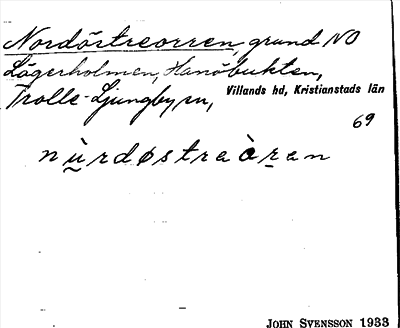 Nordöstreorren, grund NO
Lägerholmen, Hanöbukten,
Trolle-Ljungby sn, Villands hd, Kristianstads län
69
nùrdøstreàren
JOHN SVENSSON 1933